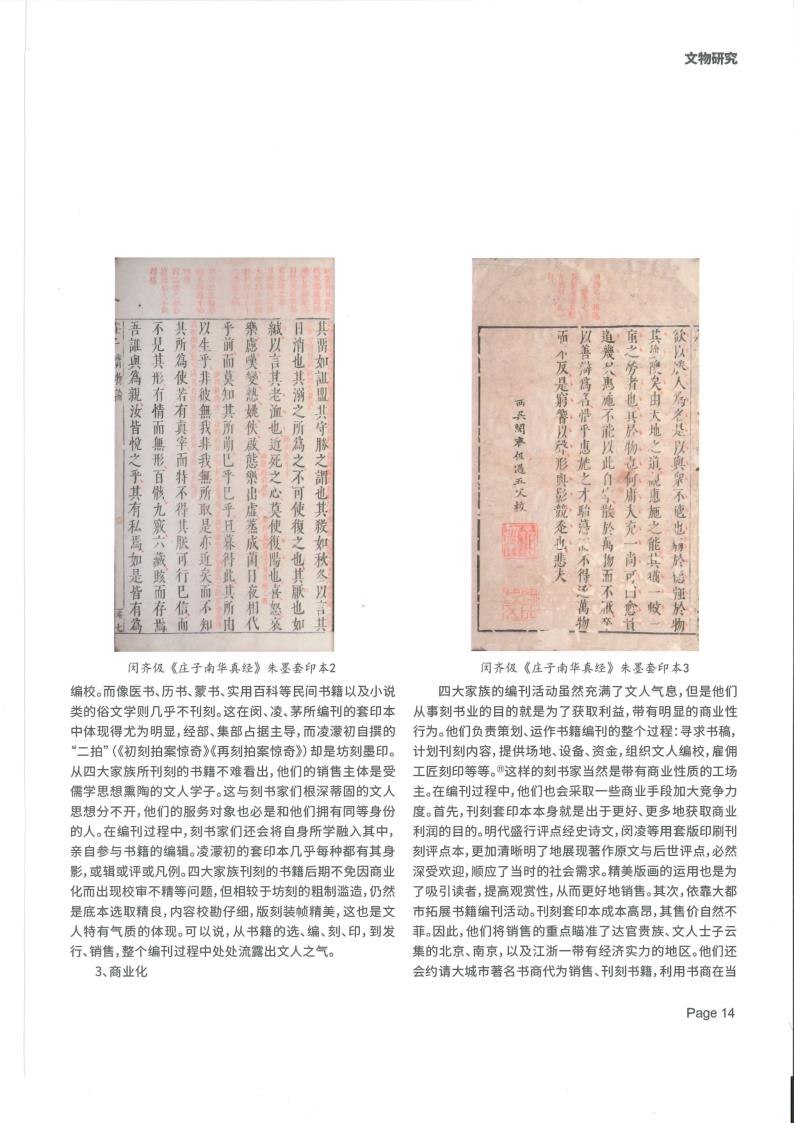 文物研究
其畱如詛盟其守勝之謂也其殺如秋冬以言其
日消也其溺之所為之不可使復之也其厭也如
緘以言其老洫也近死之心莫使復陽也喜怒哀
樂慮嘆變慹姚佚啟態樂出虛蒸成菌日夜相代
乎前而莫知其所萌已乎已乎旦暮得此其所由
以生乎非彼無我非我無所取是亦近矣而不知
其所為使若有真宰而特不得其眹可行已信而
不見其形有情而無形百骸九竅六藏賅而存焉
吾誰與為親汝皆悅之乎其有私焉如是皆有為
欲以勝人為名是以與眾不適也弱於德強於物
其塗隩矣由天地之道觀惠施之能其猶一蚉一
蝱之勞者也其於物也何庸夫充一尚可曰愈貴
道幾矣惠施不能以此自寧散於萬物而不厭卒
以善辯為名惜乎惠施之才駘蕩而不得逐萬物
而不反是窮響以聲形與影競走也悲夫
西吳閔齊伋遇五父校
闵齐伋《庄子南华真经》朱墨套印本2
闵齐伋《庄子南华真经》朱墨套印本3
编校。而像医书、历书、蒙书、实用百科等民间书籍以及小说
类的俗文学则几乎不刊刻。这在闵、凌、茅所编刊的套印本
中体现得尤为明显,经部、集部占据主导,而凌濛初自撰的
“二拍”(《初刻拍案惊奇》《再刻拍案惊奇》)却是坊刻墨印。
从四大家族所刊刻的书籍不难看出,他们的销售主体是受
儒学思想熏陶的文人学子。这与刻书家们根深蒂固的文人
思想分不开,他们的服务对象也必是和他们拥有同等身份
的人。在编刊过程中,刻书家们还会将自身所学融入其中,
亲自参与书籍的编辑。凌濛初的套印本几乎每种都有其身
影,或辑或评或凡例。四大家族刊刻的书籍后期不免因商业
化而出现校审不精等问题,但相较于坊刻的粗制滥造,仍然
是底本选取精良,内容校勘仔细,版刻装帧精美,这也是文
人特有气质的体现。可以说,从书籍的选、编、刻、印,到发
行、销售,整个编刊过程中处处流露出文人之气。
3、商业化
四大家族的编刊活动虽然充满了文人气息,但是他们
从事刻书业的目的就是为了获取利益,带有明显的商业性
行为。他们负责策划、运作书籍编刊的整个过程:寻求书稿,
计划刊刻内容,提供场地、设备、资金,组织文人编校,雇佣
工匠刻印等等。⑪这样的刻书家当然是带有商业性质的工场
主。在编刊过程中,他们也会采取一些商业手段加大竞争力
度。首先,刊刻套印本本身就是出于更好、更多地获取商业
利润的目的。明代盛行评点经史诗文,闵凌等用套版印刷刊
刻评点本,更加清晰明了地展现著作原文与后世评点,必然
深受欢迎,顺应了当时的社会需求。精美版画的运用也是为
了吸引读者,提高观赏性,从而更好地销售。其次,依靠大都
市拓展书籍编刊活动。刊刻套印本成本高昂,其售价自然不
菲。因此,他们将销售的重点瞄准了达官贵族、文人士子云
集的北京、南京,以及江浙一带有经济实力的地区。他们还
会约请大城市著名书商代为销售、刊刻书籍,利用书商在当
Page 14